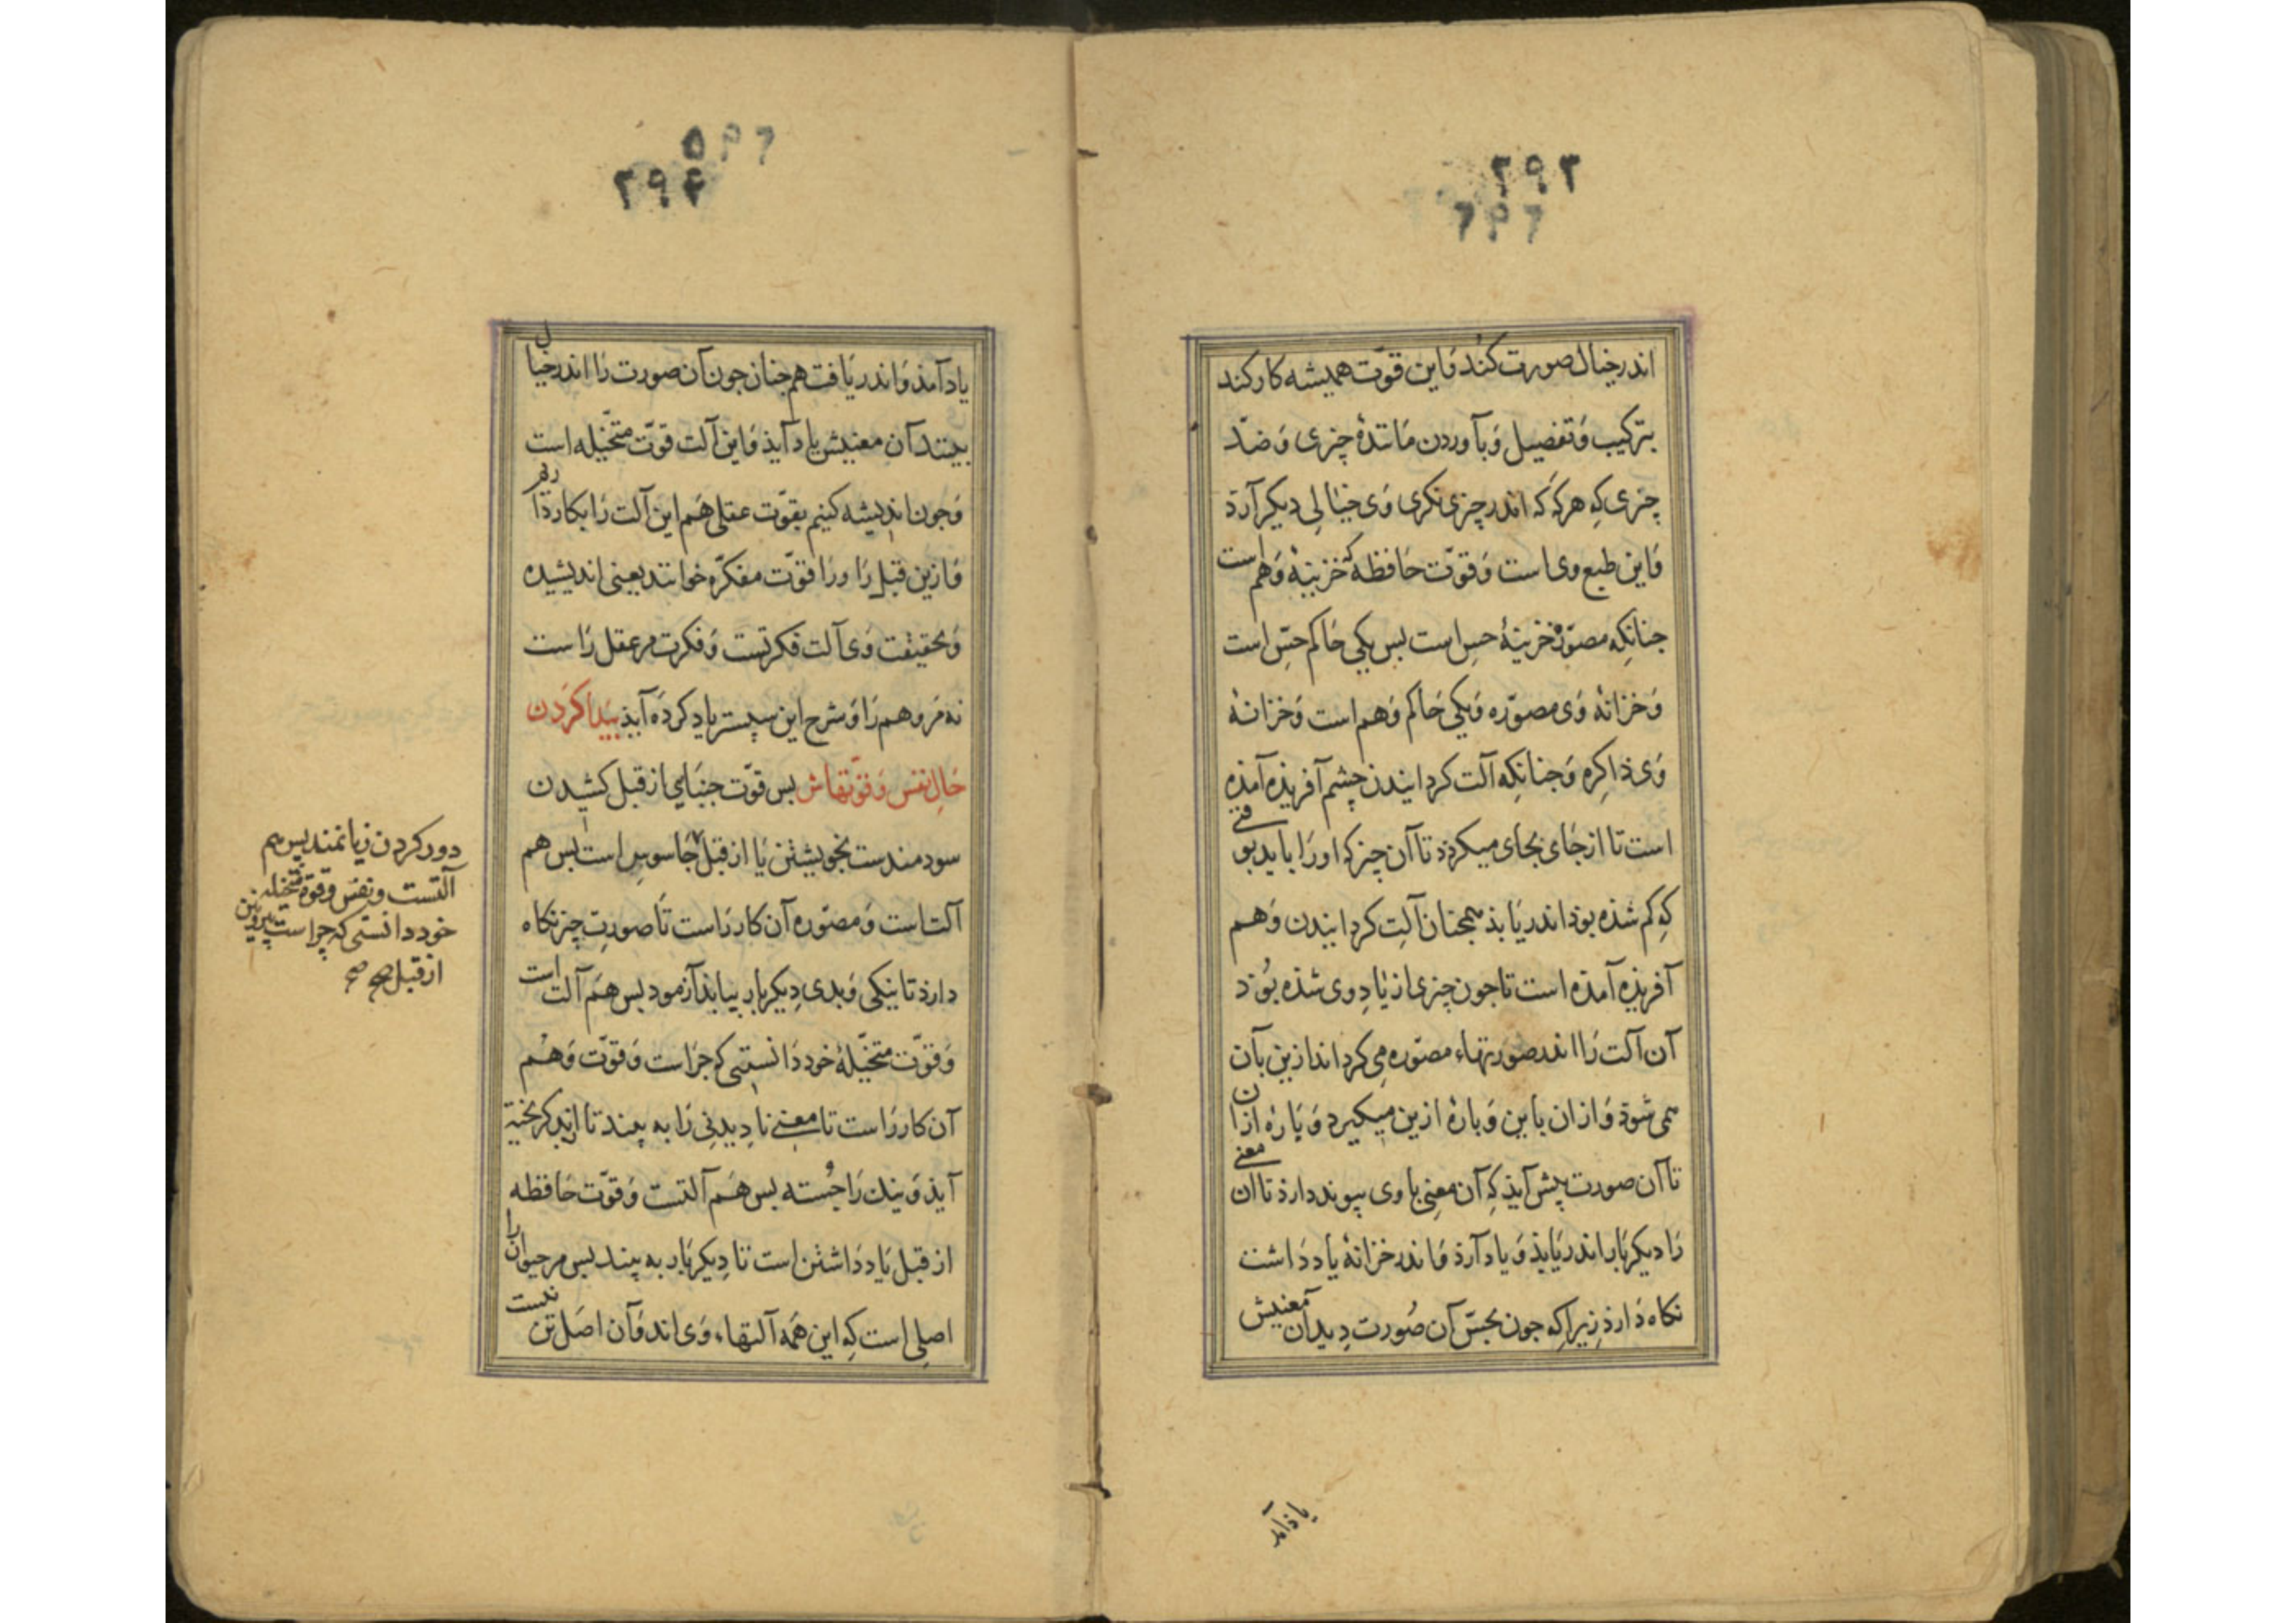 ۲۹۳
اندر خیال صورت کند وَاین قوّت همیشه کار کند
بترکیب وَتفصیل وَبآوردن مَانندهٔ چیزی وَضدّ
چیزی کِه هرکه که اندر چیزی نکری وَی خیَالِی دیکر آرذ
وَاین طبع وی است وَقوّت حَافظه که خزینهٔ وَهم است
جنانکِه مصوّره خزینهٔ حسِ است بس یکی حَاکم حسِّ است
وَخزانهٔ وَی مصوّره وَیکی حَاکم وَهم است وَخزانهٔ
وَی ذاکِره وَجنانکِه آلت کردانیدن چشم آفریذه آمذه
است تا از جَای بجَای میکردذ تا آن چیز که اورَا بایدبو قتی
کِه کم شذه بوذ اندریَابذ همجنان آلتِ کردانیدن وَهم
آفریذه آمذه است تا جون چیزی از یَادِ وی شذه بُوَد
آن آلت رَا اندر صوَرتهاء مصوّره مِی کرداند ازین بآن
می شوذ وَاز ان باین وَبارهٔ ازین میکیرد وَیَارهٔ ازان
تا آن صورت پیش آیذ کِه آن معنِی با وی پیوند دارذ تا ان معنی
رَا دیکر بَار اندریَابذ وَیاد آرذ وَاندر خزانهٔ یاد دَاشت
نکاه دَارذ زِیراکِه جون بحسّ آن صُورت دِید آن معنیش
یاذ آمد
۲۹۴
یاد آمذ وَاندریَافت هم جنان جون آن صورت رَا اندر خیال
بیند آن معنیش یاد آیذ وَاین آلت قوّت متخّیله است
وَجون اندیشه کنیم بقوّت عقلی هَم این آلت رَا بکار داریم
وَازین قبل رَا ورَا قوّت مفکرّه خوانند یعنی اندیشیده
وَبحقیقت وَی آلت فکرتست وَفکرت مرعقل رَاست
نه مَر وهم رَا وَشرح این سپستر یاد کردَه آیذ بیَدا کردن
حَالِ نفس وَقوّتهاش بس قوّت جنبَایی از قبل کشیدن
سودمندست بخویشتن یَا از قبل جَاسوسِی است بس هم
آلت است وَمصّوره آن کار رَاست تَا صورتِ چیز نکاه
دارذ تا نیکی وَبدی دِیکر بار بیابذ آزمود بس هَم آلت است
وَقوّت متخیّلهٔ خود دَانستی که جرَاست وَقوّت وَهم
آن کار رَا است تا معنی نادِیدنِی رَا به بیند تا از بد کریخته
آیذ وَنیك رَا جُسته بس هَم آلتست وَقوّت حَافظه
از قبل یَاد دَاشتن است تا دِیکر بَار به بیند بس مر حیوان را
اصلِی است کِه این همَه آلتهاء وَی اند وَآن اصَل تن نیست
دور کردن زیانمند پس هم
آلتست ونفس وقوّة متخیله
خود دانستی که چرا است
از قبل صح صح